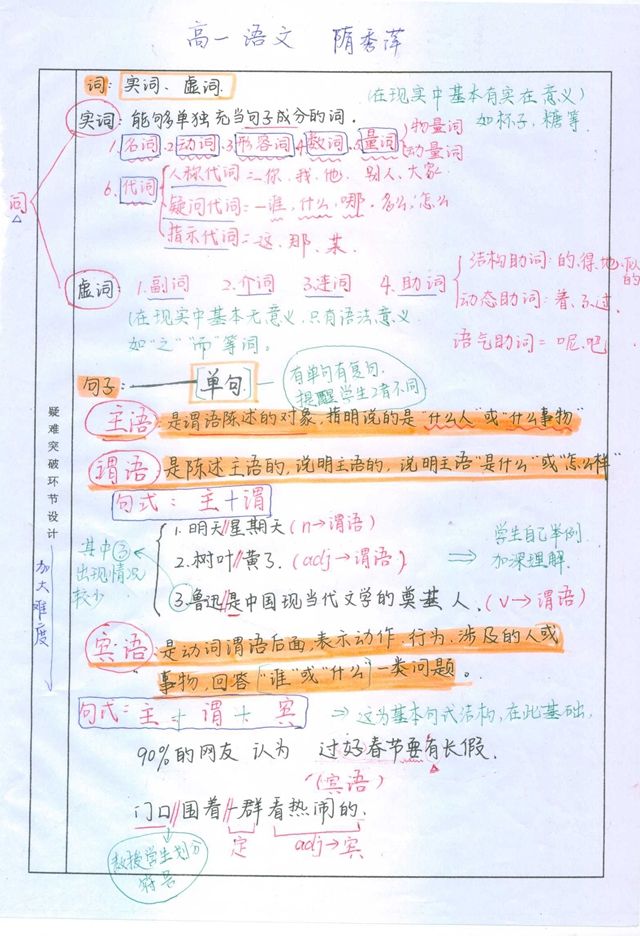 高一语文 隋秀萍
词: 实词、虚词.
(在现实中基本有实在意义)
如杯子,糖等
实词: 能够单独充当句子成分的词.
1.名词.2.动词.3.形容词4.数词.5.量词 物量词
动量词
6.代词 人称代词=一你、我、他、别人、大家.
疑问代词=一谁、什么、哪、多么、怎么
指示代词=一这、那、某
词
虚词: 1.副词 2.介词 3.连词 4.助词 结构助词: 的、得、地、似的
动态助词: 着、了、过.
语气助词=呢、吧
(在现实中基本无意义.只有语法意义
如"之""而"等词。
句子: 单句
有单句有复句.
提醒学生2者不同
主语: 是谓语陈述的对象,指明说的是"什么人"或"什么事物"
谓语 是陈述主语的,说明主语的,说明主语"是什么"或"怎么样"
句式: 主+谓
1.明天//星期天(n→谓语)
2.树叶//黄了.(adj→谓语)
3.鲁迅//是中国现当代文学的奠基人.(v→谓语)
⇒ 学生自己举例.
加深理解.
其中③
出现情况
较少.
疑难突破环节设计
加大难度
宾语 是动词谓语后面,表示动作.行为.涉及的人或
事物,回答"谁"或"什么"一类问题。
句式:主+谓+宾 ⇒这为基本句式结构,在此基础,
90%的网友 认为 过好春节要有长假.
(宾语)
门口//围着/一群看热闹的.
定 adj→宾
教授学生划分
符号